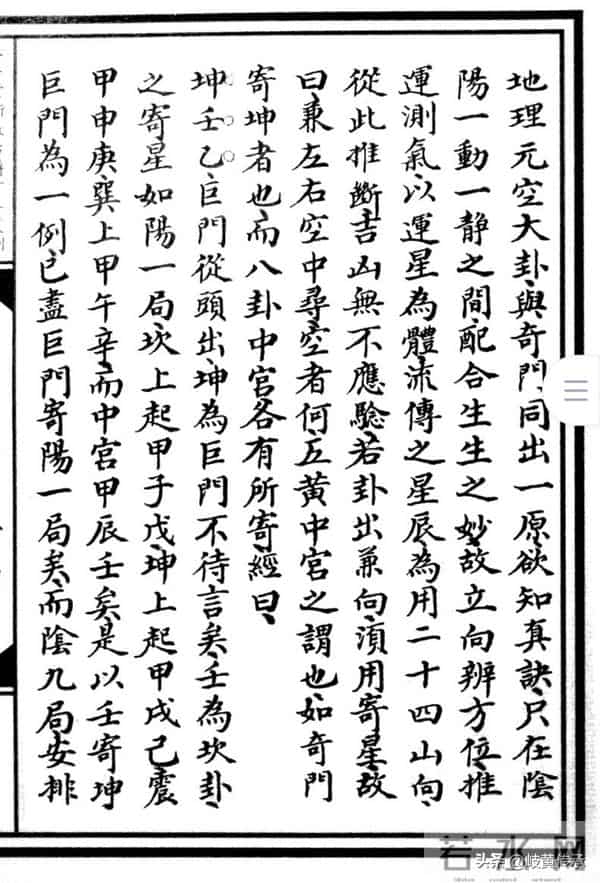 地理元空大卦、與奇門同出一原、欲知真訣、只在陰
陽一動一静之間、配合生生之妙、故立向辨方位、推
運測氣、以運星為體、流傳之星辰為用、二十四山向、
從此推斷吉凶、無不應驗、若卦出兼向、湏用寄星、故
曰兼左右空中尋、空者何、五黃中宮之謂也、如奇門
寄坤者也、而八卦中宮各有所寄、經曰、
坤壬乙巨門從頭出、坤為巨門不待言矣、壬為坎卦、
之寄星、如陽一局、坎上起甲子戊、坤上起甲戌己、震
甲申庚、巽上甲午辛、而中宮甲辰壬矣、是以壬寄坤
巨門為一例、已盡巨門寄陽一局矣、而陰九局安排
若水网
头条 @岐黄传承